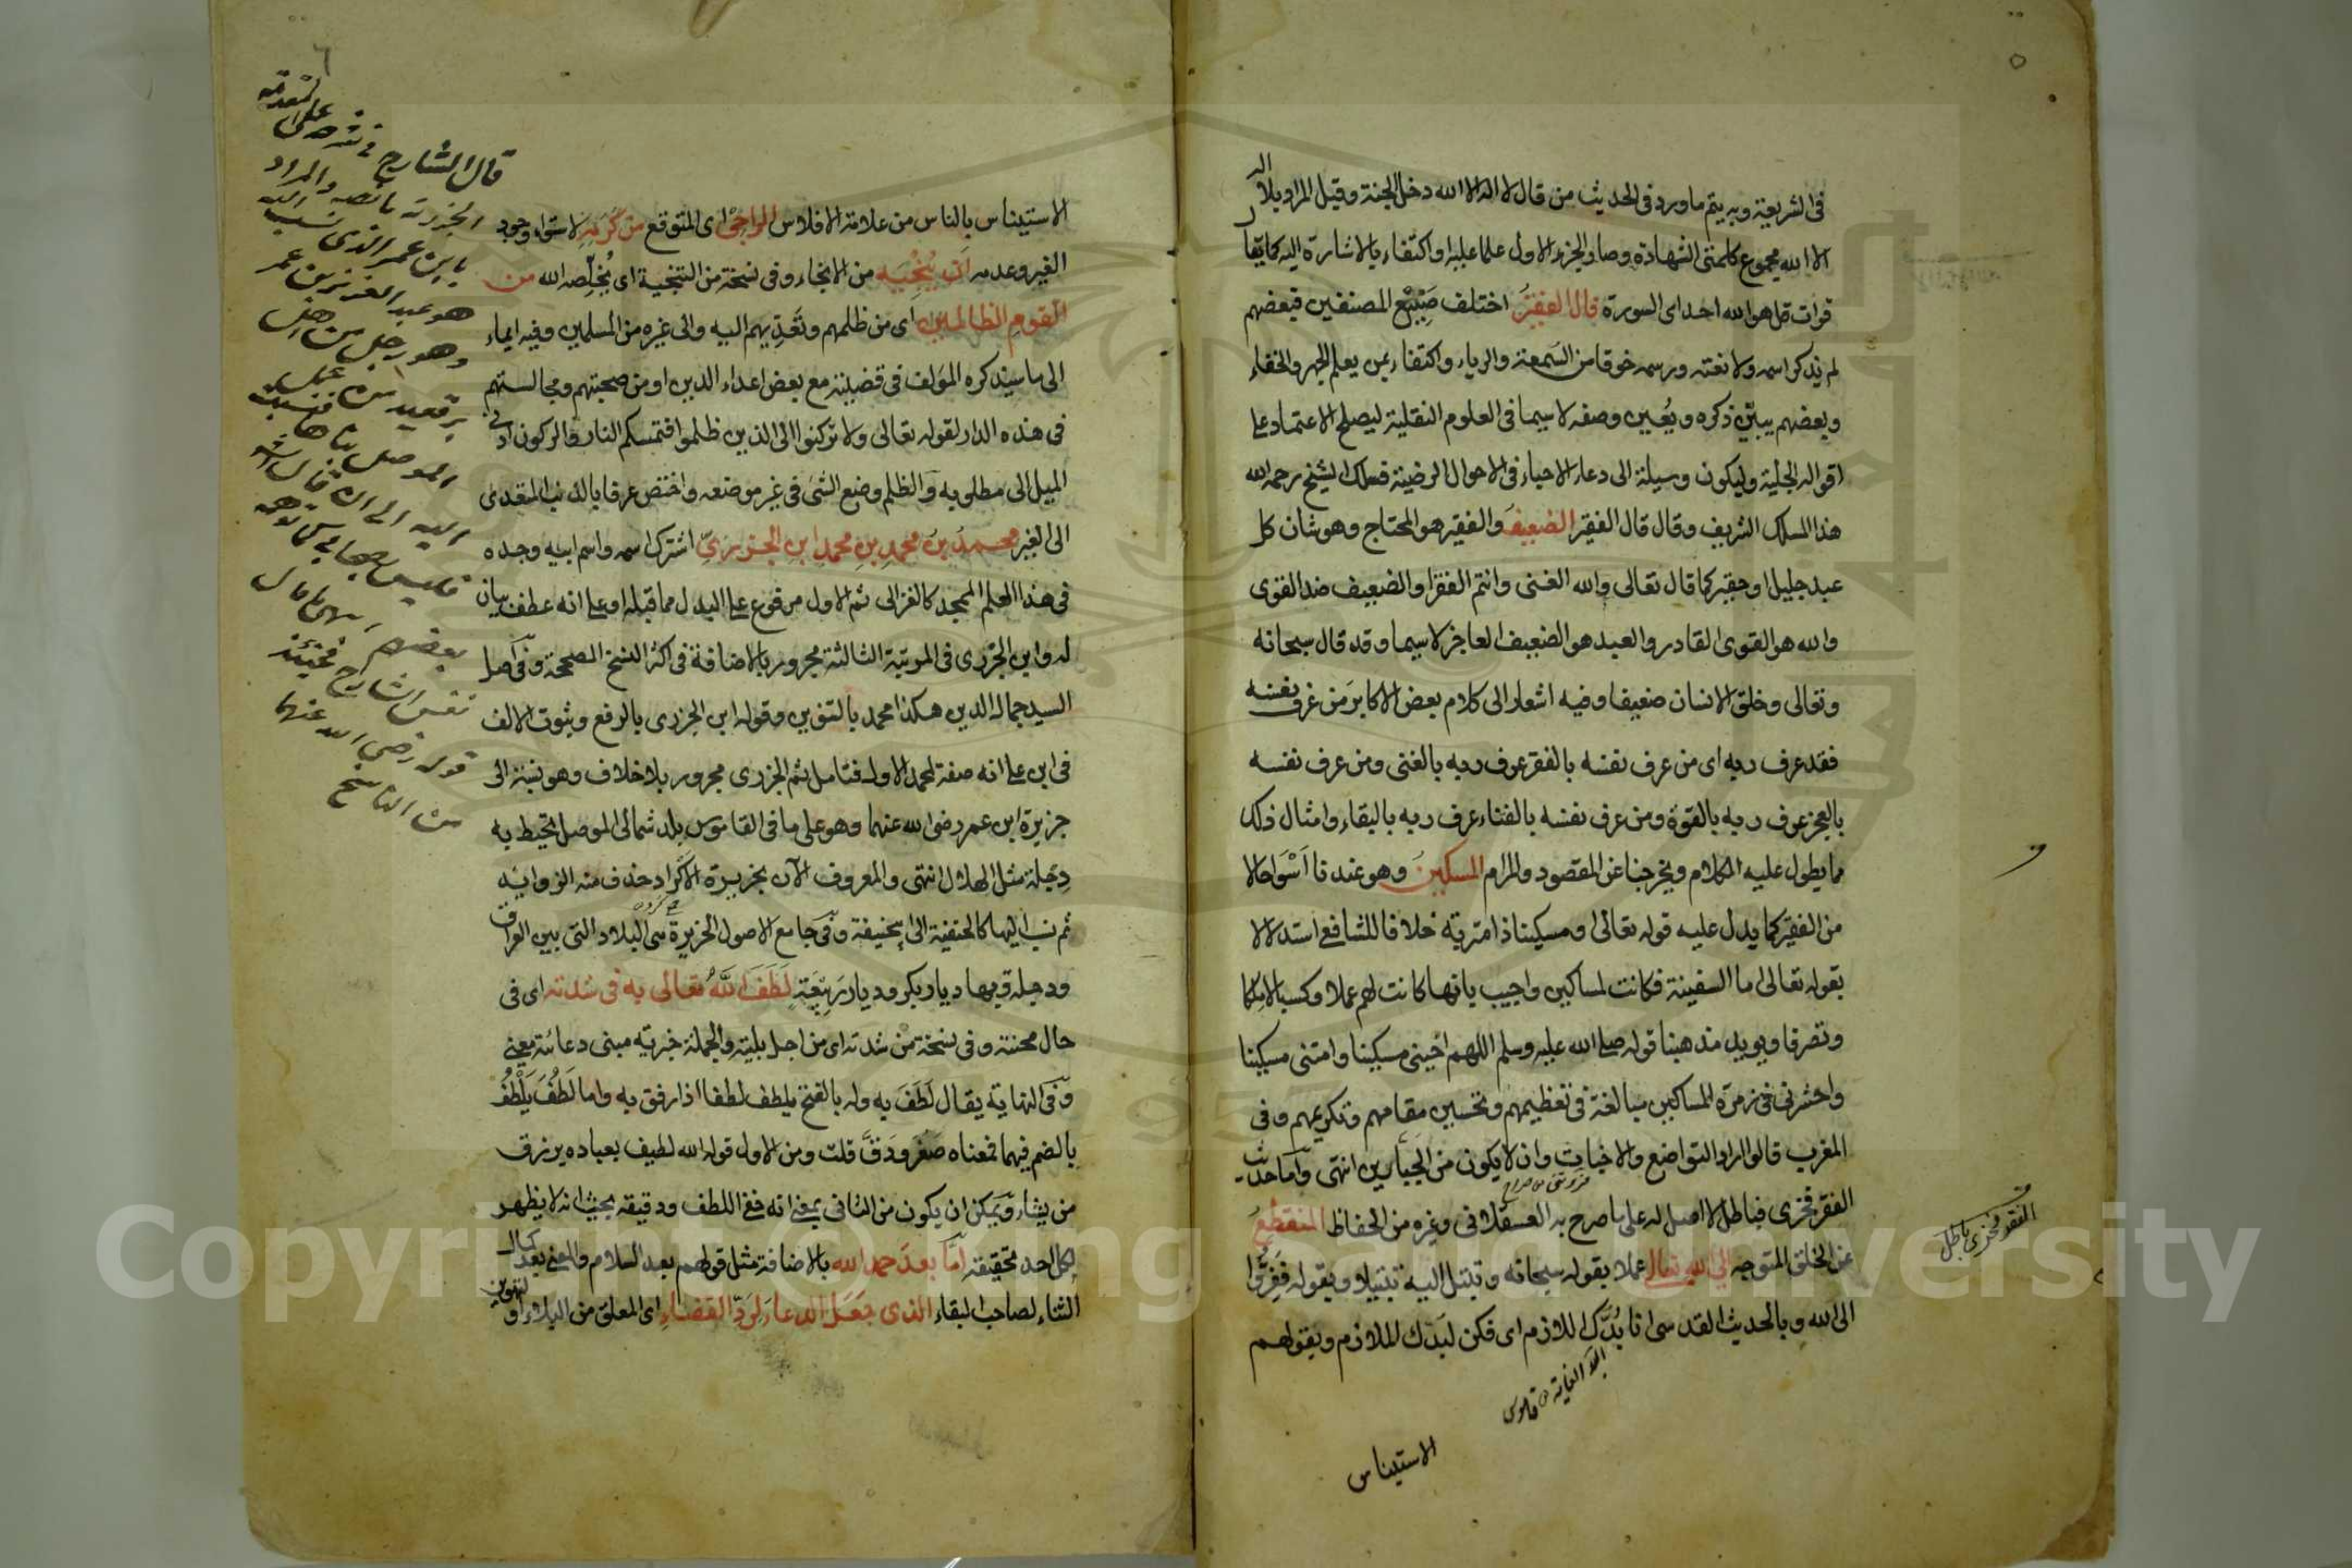 في الشريعة وبه يتم ما ورد في الحديث من قال لا اله الا الله دخل الجنة وقيل المراد بلا اله
الا الله مجموع كلمتي الشهادة وصار الجزء الاول علما عليها واكتفاء بالاشارة اليه كما يقال
قرات قل هو الله احد اى السورة قال الفقير اختلف صنيع المصنفين فبعضهم
لم يذكر اسمه ولا نعته ورسمه خوفا من السمعة والرياء واكتفاء بمن يعلم الجهر والخفاء
وبعضهم يبين ذكره ويعين وصفه لا سيما في العلوم النقلية ليصلح الاعتماد على
اقواله الجلية وليكون وسيلة الى دعاء الاحياء في الاحوال الرضية فسلك الشيخ رحمه الله
هذا المسلك الشريف وقال قال الفقير الضعيف والفقير هو المحتاج وهو شان كل
عبد جليل او حقير كما قال تعالى والله الغنى وانتم الفقراء والضعيف ضد القوى
والله هو القوى القادر والعبد هو الضعيف العاجز لا سيما وقد قال سبحانه
وتعالى وخلق الانسان ضعيفا وفيه اشعار الى كلام بعض الاكابر من عرف نفسه
فقد عرف ربه اى من عرف نفسه بالفقر عرف ربه بالغنى ومن عرف نفسه
بالعجز عرف ربه بالقوة ومن عرف نفسه بالفناء عرف ربه بالبقاء وامثال ذلك
مما يطول عليه الكلام ويخرجنا عن المقصود والمرام المسكين وهو عندنا اسوا حالا
من الفقير كما يدل عليه قوله تعالى او مسكينا ذا متربة خلافا للشافعى استدلالا
بقوله تعالى اما السفينة فكانت لمساكين واجيب بانها كانت لهم عملا وكسبا لا ملكا
وتصرفا ويويد مذهبنا قوله صلى الله عليه وسلم اللهم احينى مسكينا وامتنى مسكينا
واحشرنى فى زمرة المساكين مبالغة فى تعظيمهم وتحسين مقامهم وتكريمهم وفى
المغرب قالوا اراد التواضع والاخبات وان لا يكون من الجبارين انتهى واما حديث
الفقر فخرى فباطل لا اصل له على ما صرح به العسقلانى وغيره من الحفاظ المنقطع
عن الخلق المتوجه الى الله تعالى عملا بقوله سبحانه وتبتل اليه تبتيلا وبقوله ففروا
الى الله وبالحديث القدسى انا بدك اللازم اى فكن لبدك الملازم وبقولهم
الاستيناس
الفقر فخرى باطل
الاستيناس بالناس من علامة الافلاس الراجى اى المتوقع من كرمه لاستواء وجود
الغير وعدمه ان ينجيه من الانجاء وفى نسخة من التنجية اى يخلصه الله من
القوم الظالمين اى من ظلمهم وتعديهم اليه والى غيره من المسلمين وفيه ايماء
الى ما سيذكره المولف فى قضيته مع بعض اعداء الدين او من صحبتهم ومجالستهم
فى هذه الدار لقوله تعالى ولا تركنوا الى الذين ظلموا فتمسكم النار والركون ادنى
الميل الى مطلوبه والظلم وضع الشئ فى غير موضعه واختص عرفا بالذنب المتعدى
الى الغير محمد بن محمد بن محمد ابن الجزرى اشترك اسمه واسم ابيه وجده
فى هذا العلم الممجد كالغزالى ثم الاول مرفوع على البدل مما قبله او على انه عطف بيان
له وابن الجزرى فى المرتبة الثالثة مجرور بالاضافة فى اكثر النسخ المصححة وفى اصل
السيد جمال الدين هكذا محمد بالتنوين وقوله ابن الجزرى بالرفع وثبوت الالف
فى ابن على انه صفة لمحمد الاول فتامل ثم الجزرى مجرور بلا خلاف وهو نسبة الى
جزيرة ابن عمر رضى الله عنهما وهو على ما فى القاموس بلد شمالى الموصل يحيط به
دجلة مثل الهلال انتهى والمعروف الان بجزيرة الاكراد حذف منه الزوايد
ثم نسب اليها كالحنفية الى ابى حنيفة وفى جامع الاصول الجزيرة هى البلاد التى بين العراق
ودجلة وبها ديار بكر وديار ربيعة لطف الله تعالى به فى شدته اى فى
حال محنته وفى نسخة من شدته اى من اجل بليته والجملة خبرية مبنى دعائية معنى
وفى النهاية يقال لطف به وله بالفتح يلطف لطفا اذا رفق به واما لطف يلطف
بالضم فيهما فمعناه صغر ودق قلت ومن الاول قوله الله لطيف بعباده يرزق
من يشاء ويمكن ان يكون من الثانى بمعنى انه فى اللطف ودقيقه بحيث انه لا يظهر
لكل احد تحقيقه اما بعد حمد الله بالاضافة مثل قولهم بعد السلام والمعنى بعد كمال
الثناء لصاحب البقاء الذى جعل الدعاء لرد القضاء اى المعلق من البلاء او
قال الشارح فى شرحه على المقدمة
الجزرية ما نصه والمراد
بابن عمر الذى نسب اليه
هو عبد العزيز بن عمر
وهو رجل من اهل
برقعيد من عمل
الموصل بناها فنسبت
اليه
فليس بصحابى كما توهمه
بعضهم
نفس الشارح فحينئذ
قوله رضى الله عنهما
من الناسخ